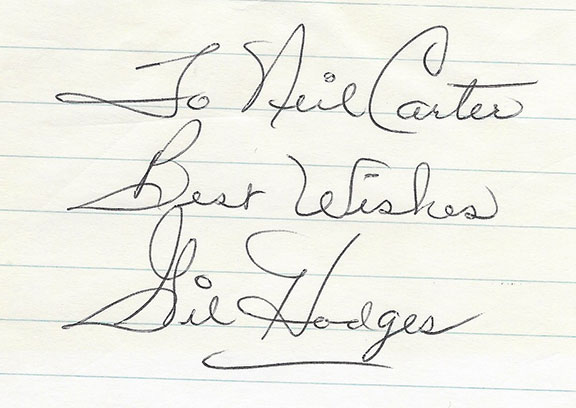 To Neil Carter
Best Wishes
Gil Hodges